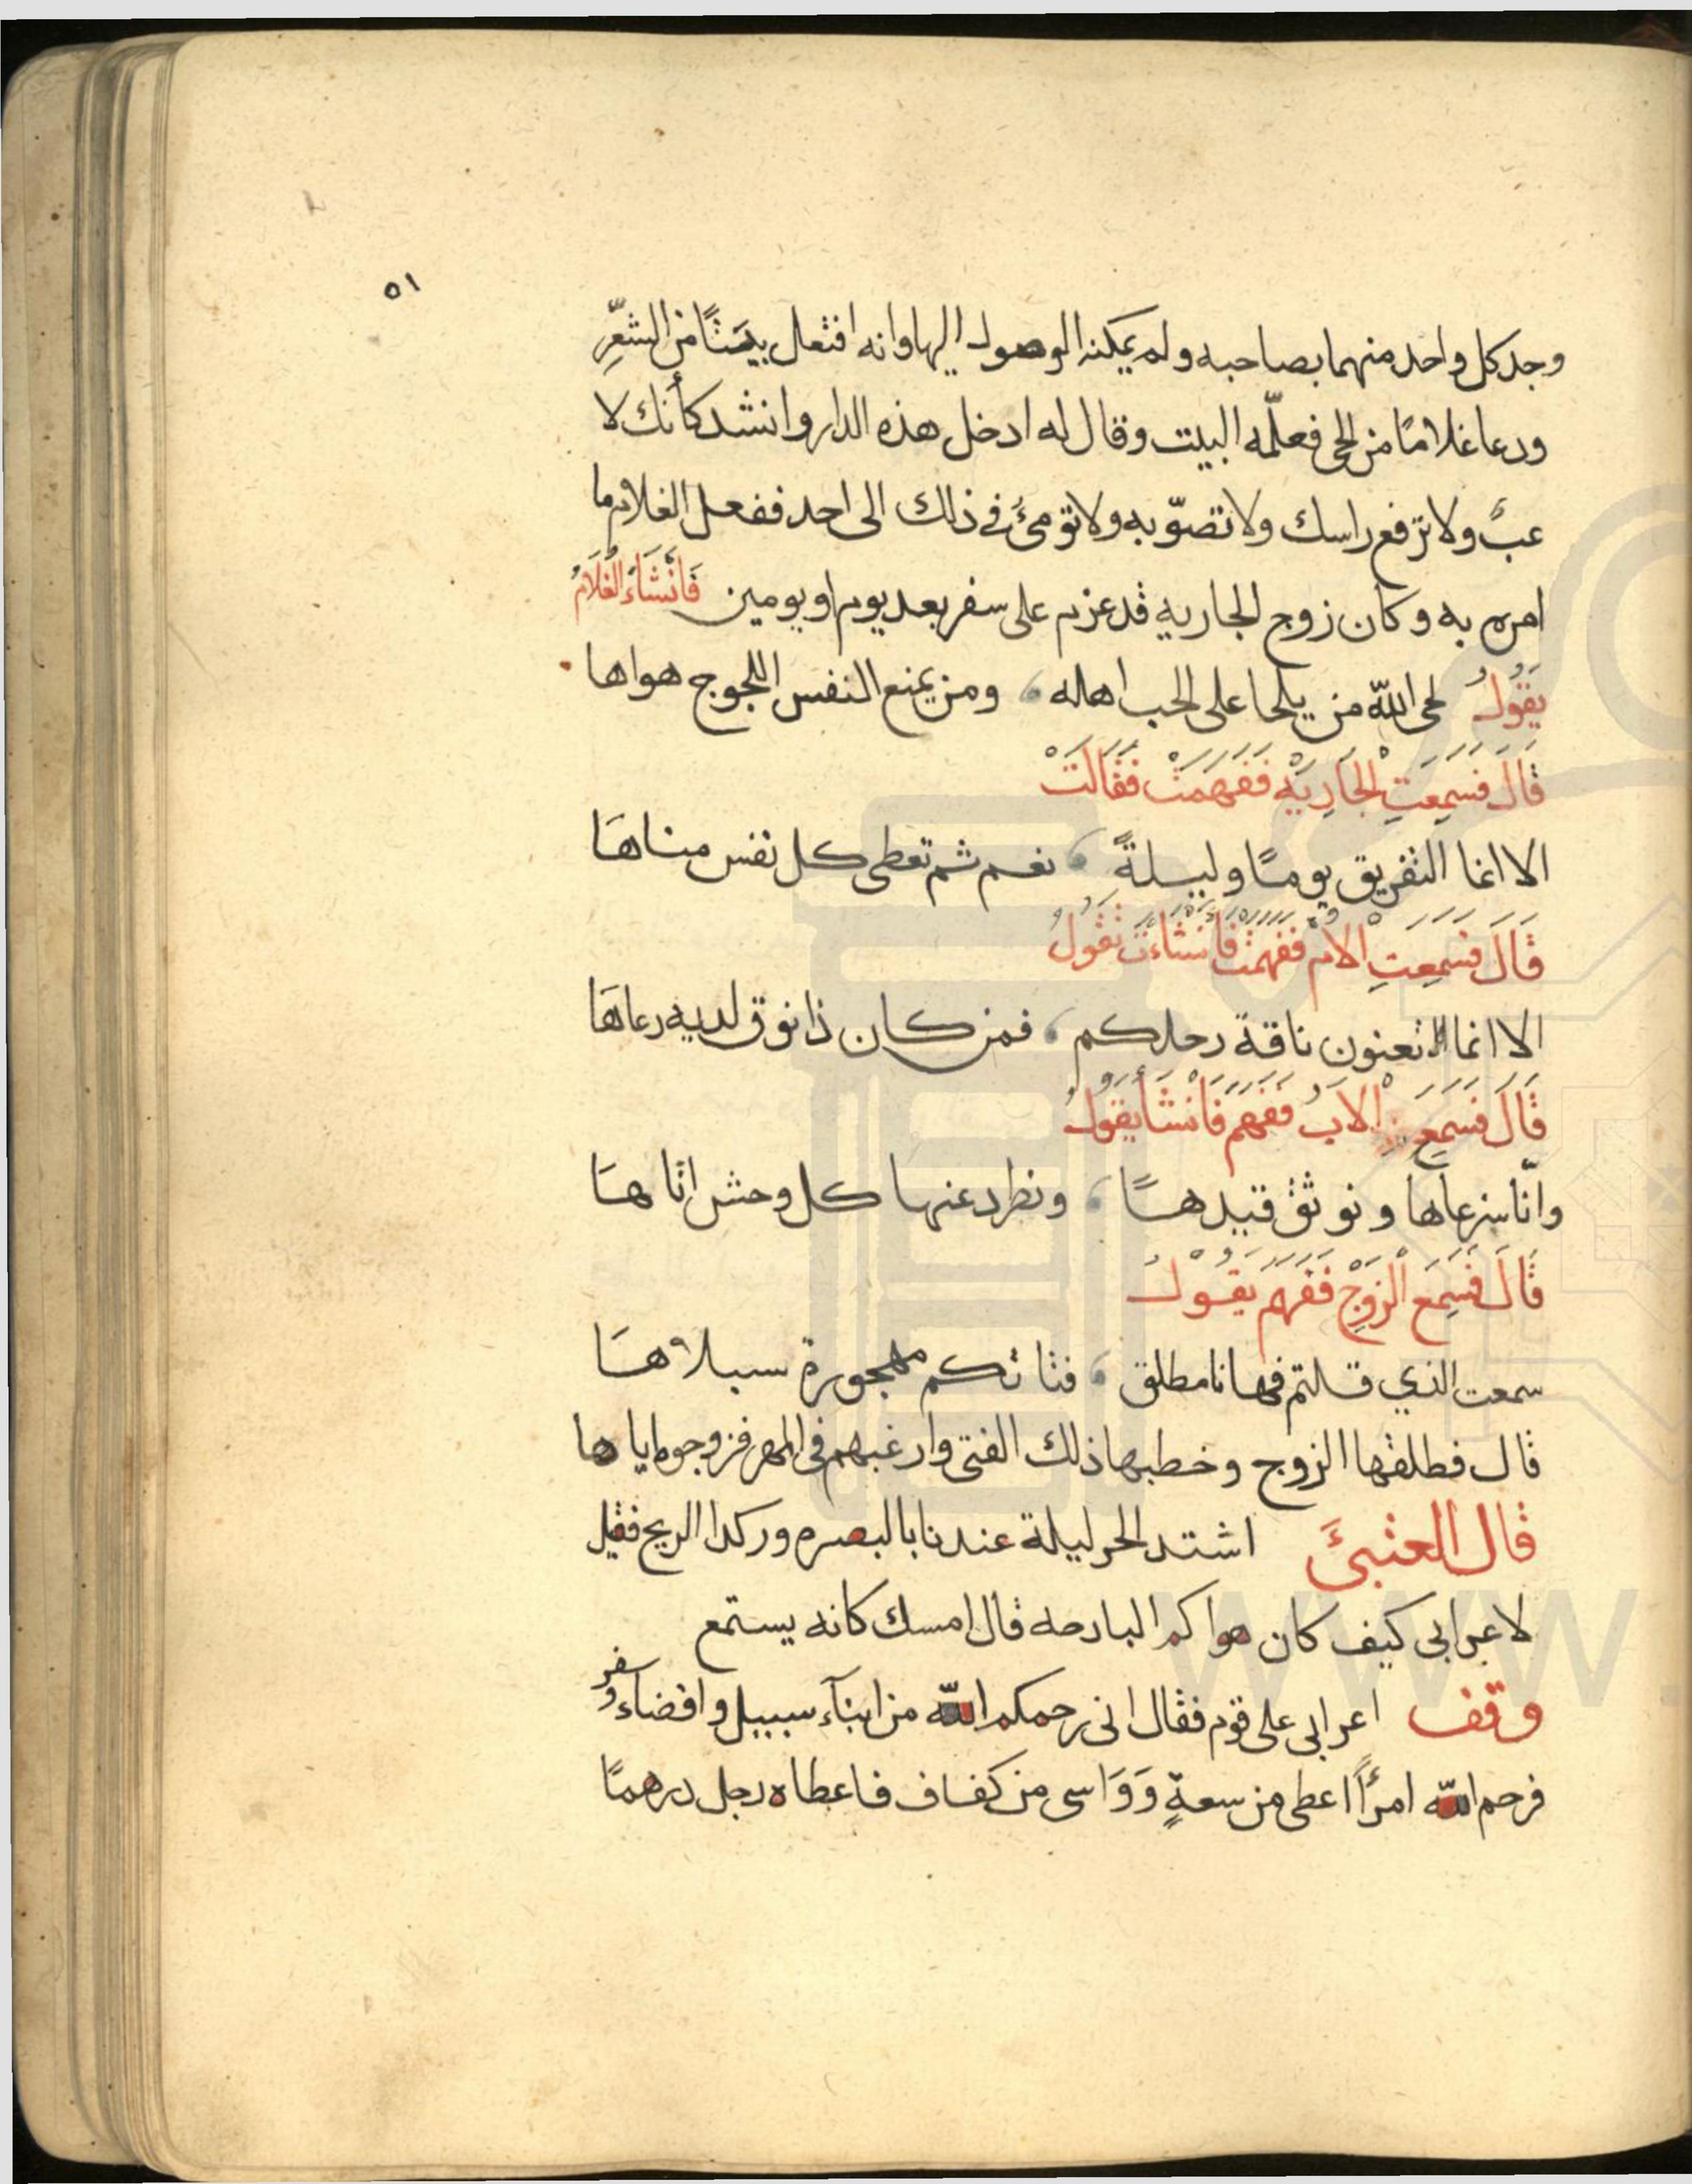 ٥١
وجد كل واحد منهما بصاحبه ولم يمكنه الوصول اليها وانه افتعل بيتًا من الشعرِ
ودعا غلامًا من الحي فعلّمه البيت وقال له ادخل هذه الدار وانشد كأنك لا
عبٌ ولا ترفع راسك ولا تصوّبه ولا تؤمئ في ذلك الى احد ففعل الغلام ما
امره به وكان زوج الجاريه قد عزم على سفر بعد يوم او يومين فَأنْشَاءَ الغُلَامُ
يَقُولُ لحى اللّه من يلحا على الحب اهله ، ومن يمنع النفس اللجوج هواها
قَالَ فَسَمِعَتِ الْجَارِيَةْ فَفَهَمَتْ فَقَالَتْ
الا انما التفريق يومًا وليلةً ، نعم ثم تعطى كل نفس مناهَا
قَالَ فَسَمِعَتِ الْاُمْ فَفَهِمَتْ فَأَنْشَاءَتْ تَقُولُ
الا انما تعنون ناقة رحلكم ، فمن كان ذا نوق لديه رعاهَا
قَالَ فَسَمِعَ الْابُ فَفَهِمَ فَأَنْشَأَ يَقُولُ
وانّا سنرعاها ونوثق قيدهًا ، ونطرد عنها كل وحش اتاهَا
قَالَ فَسَمِعَ الْزَوْجْ فَفَهِمَ يَقُوْلُ
سمعت الذي قلتم فها انا مطلق ، فتاتكم مهجورة سبلاهَا
قال فطلقها الزوج وخطبها ذلك الفتى وارغبهم في المهر فزوجوه اياها
قال العتبيَ اشتد الحر ليلة عندنا بالبصره وركدا الريح فقيل
لاعرابى كيف كان هواكم البارحه قال امسك كانه يستمع
وقف اعرابى على قوم فقال انى رحمكم اللّه من ابنآء سبيل وافضآء وُ سفر
فرحم اللّه امرًأ اعطى من سعةٍ وَوَاسى من كفاف فاعطاه رجل درهمًا